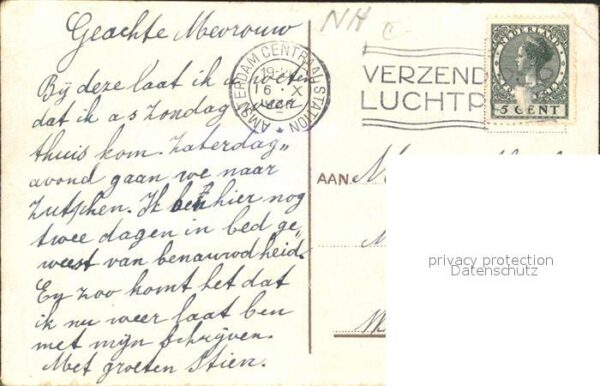 Geachte Mevrouw
Bij deze laat ik u
dat ik a s Zondag
thuis kom. Zaterdag
avond gaan we naar
Zutphen. Ik ben hier nog
twee dagen in bed ge,
weest van benauwdheid.
En zoo komt het dat
ik nu weer laat ben
met mijn schrijven.
Met groeten Stien.
NH
AMSTERDAM CENTRAAL STATION
6 X
VERZEND
LUCHTP
NEDERLAND
5 CENT
AAN
privacy protection
Datenschutz